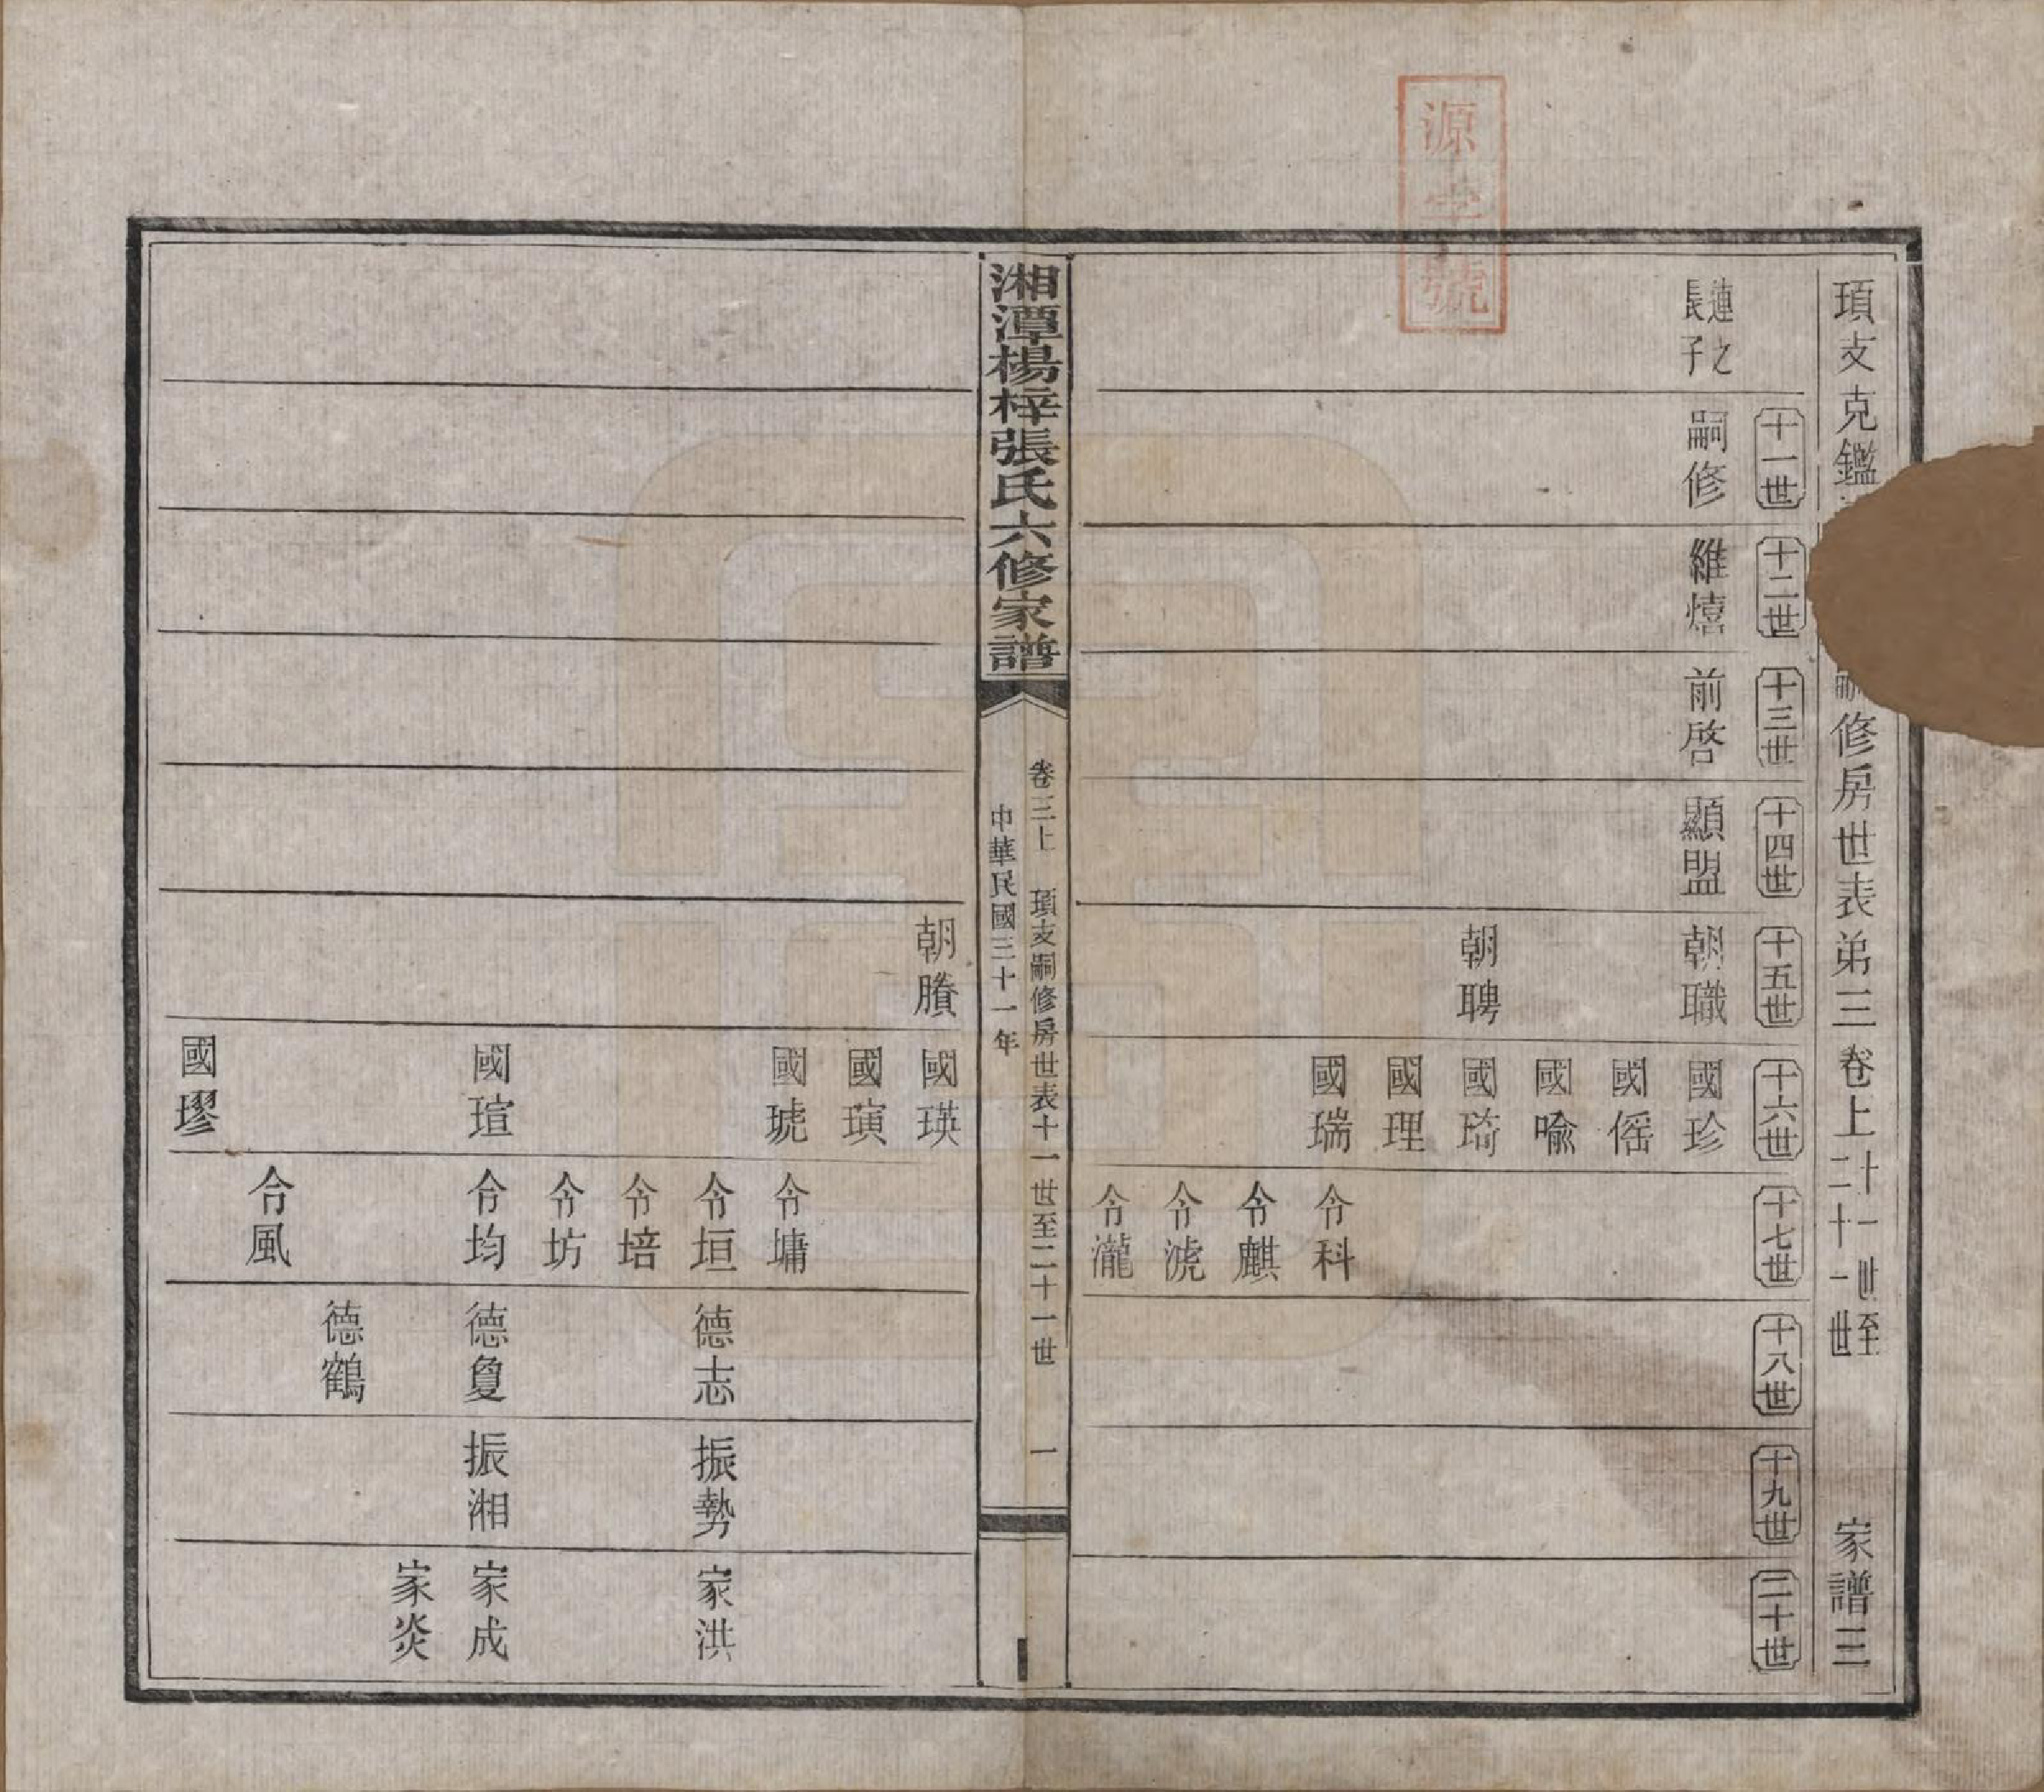 源
號
項支克鑑
修房世表弟三卷上
十一世至
二十一世
家譜三
十一世
十二世
十三世
十四世
十五世
十六世
十七世
十八世
十九世
二十世
連之
長子
嗣修
維熺
前啓
顯盟
朝職
國珍
國傜
國喻
朝聘
國琦
國理
國瑞
令科
令麒
令淲
令瀧
湘潭楊梓張氏六修家譜
卷三上
項支嗣修房世表十一世至二十一世
一
中華民國三十一年
朝賸
國瑛
國璜
國琥
令墉
令垣
德志
振勢
家洪
令培
令坊
國瑄
令均
德敻
振湘
家成
家炎
德鶴
令風
國璆